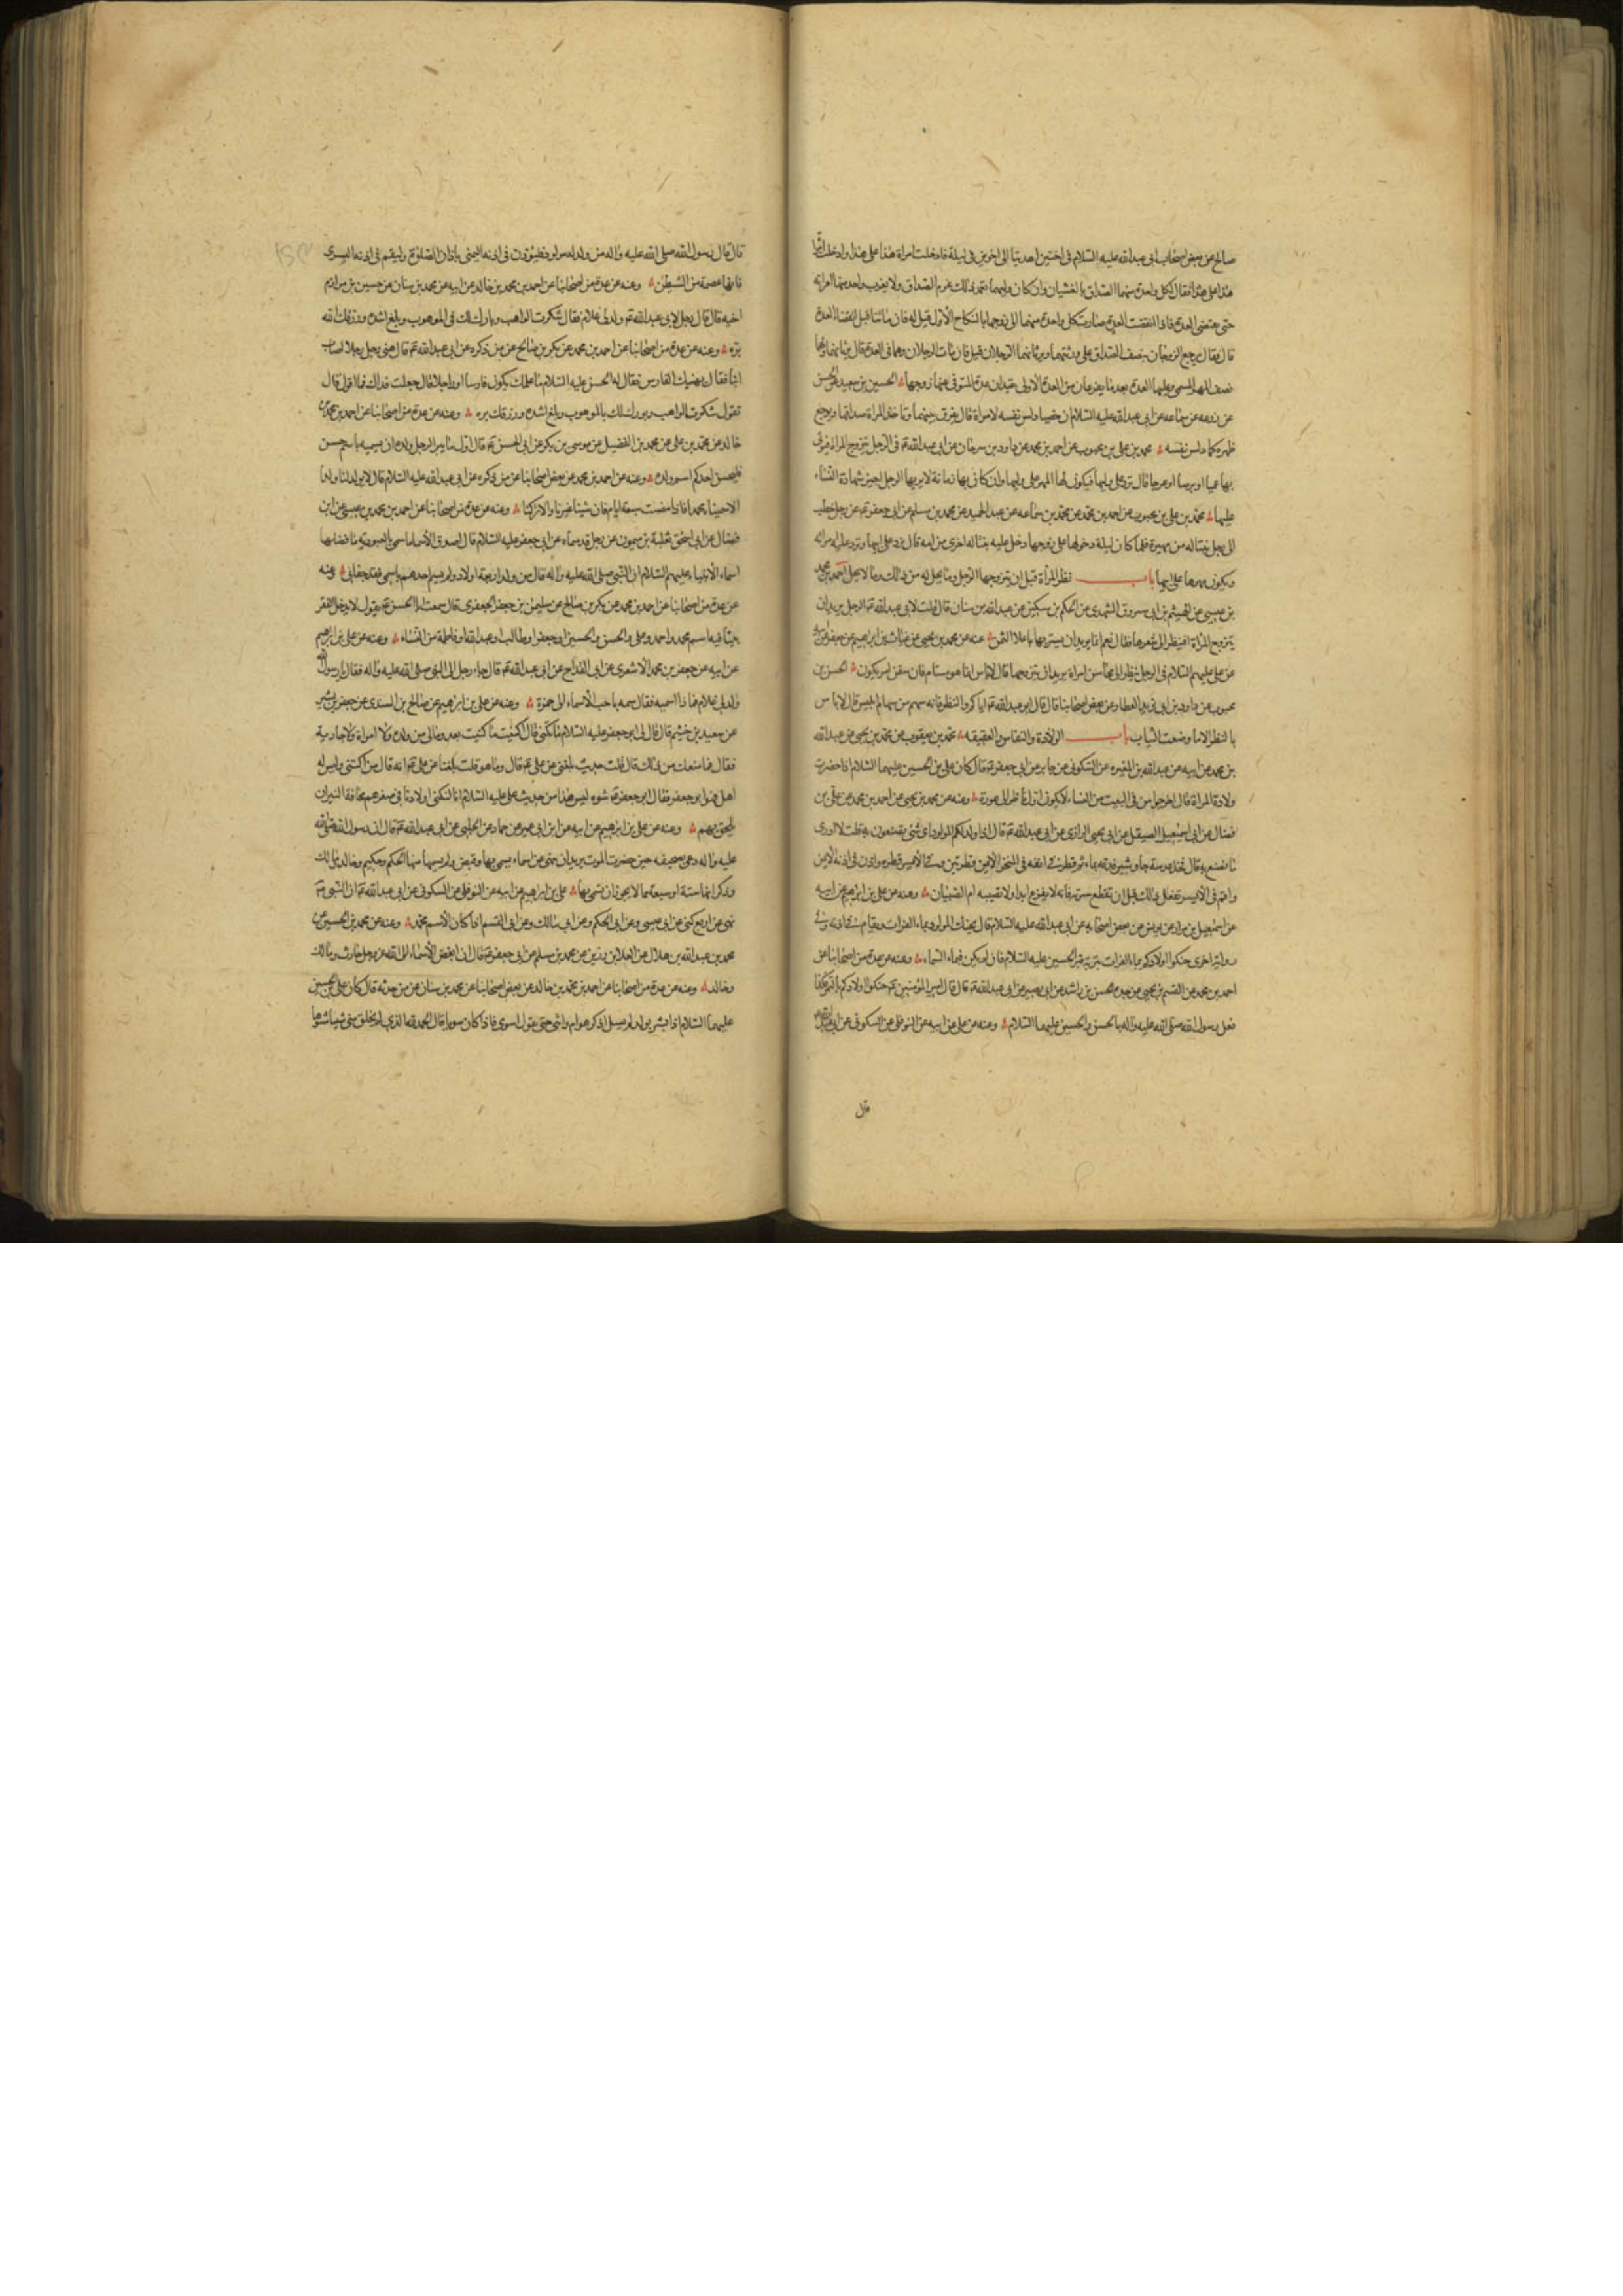 صالح عن بعض اصحاب ابى عبدالله عليه السلام فى اختين اهديتا الى اخوين فى ليلة فادخلت امراة هذا على هذا وادخلت امراة
هذا على هذا فقال لكل واحدة منهما الصداق بالغشيان وان كان وليهما تعمد ذلك غرم الصداق ولا يقرب واحد منهما امراته
حتى تنقضى العدة فاذا انقضت العدة صارت كل واحدة منهما الى زوجها بالنكاح الاول قيل له فان ماتتا قبل انقضاء العدة
قال فقال يرجع الزوجان بنصف الصداق على ورثتهما ويرثانهما الرجلان قيل فان مات الرجلان وهما فى العدة قال يرثانهما ولهما
نصف المهر المسمى وعليهما العدة بعد ما يفرغان من العدة الاولى يعتدان عدة المتوفى عنها زوجها الحسين بن سعيد عن الحسن
عن زرعه عن سماعه عن ابى عبدالله عليه السلام ان خصيا دلس نفسه لامراة قال يفرق بينهما وتاخذ المراة صداقها ويوجع
ظهره كما دلس نفسه محمد بن على بن محبوب عن احمد بن محمد عن داود بن سرحان عن ابى عبدالله ع فى الرجل يتزوج المراة فيؤتى
بها عميا او برصا او عرجا قال ترد على وليها فيكون لها المهر على وليها وان كان بها زمانة لا يريها الرجل اجيز شهادة النساء
عليها محمد بن على بن محبوب عن احمد بن محمد عن محمد بن سماعه عن عبد الحميد عن محمد بن مسلم عن ابى جعفر ع عن رجل خطب
الى رجل ابنتا له من مهيرة فلما كان ليلة دخولها على زوجها دخل عليه بنتا له اخرى من امه قال يرد على ابيها وترد عليه امراته
ويكون مهرها على ابيها باب نظر المراة قبل ان يتزوجها الرجل وما يحل له من ذلك وما لا يحل احمد بن محمد
بن عيسى عن الهيثم بن ابى مسروق النهدى عن الحكم بن مسكين عن عبدالله بن سنان قال قلت لابى عبدالله ع الرجل يريد ان
يتزوج المراة افينظر الى شعرها فقال نعم انما يريد ان يشتريها باغلا الثمن عنه عن محمد بن يحيى عن غياث بن ابراهيم عن جعفر عن ابيه
عن على عليهم السلام فى الرجل ينظر الى محاسن امراة يريد ان يتزوجها قال لاباس انما هو مستام فان يقض امر يكون الحسن بن
محبوب عن داود بن ابى يزيد العطار عن بعض اصحابنا قال قال ابو عبدالله ع اياكم والنظر فانه سهم من سهام ابليس قال لاباس
بالنظر الى ما وضعت الثياب باب الولادة والنفاس والعقيقه محمد بن يعقوب عن محمد بن يحيى عن عبدالله
بن محمد عن ابيه عن عبدالله بن المغيره عن السكونى عن جابر عن ابى جعفر ع قال كان على بن الحسين عليهما السلام اذا حضرت
ولادة المراة قال اخرجوا من فى البيت من النساء لا يكون اول ناظر الى عورة وعنه عن محمد بن يحيى عن احمد بن محمد عن على بن
فضال عن ابى اسمعيل الصيقل عن ابى يحيى الرازى عن ابى عبدالله ع قال اذا ولد لكم المولود اى شىء تصنعون به قلت لا ادرى
ما نصنع به قال خذ عدسة جاوشير فدفه بماء ثم قطر فى انفه فى المنخر الايمن قطرتين وفى الايسر قطرة واذن فى اذنه الايمن
واقم فى الايسر تفعل ذلك قبل ان تقطع سرته فانه لا يفزع ابدا ولا تصيبه ام الصبيان وعنه عن على بن ابراهيم عن ابيه
عن اسمعيل بن مرار عن يونس عن بعض اصحابه عن ابى عبدالله عليه السلام قال يحنك المولود بماء الفرات ويقام فى اذنه وفى
رواية اخرى حنكوا اولادكم بماء الفرات بتربة قبر الحسين عليه السلام فان لم يكن فبماء السماء وعنه عن عدة من اصحابنا عن
احمد بن محمد عن القسم بن يحيى عن جده الحسن بن راشد عن ابى بصير عن ابى عبدالله ع قال قال امير المؤمنين ع حنكوا اولادكم بالتمر هكذا
فعل رسول الله صلى الله عليه واله بالحسن والحسين عليهما السلام وعنه عن على عن ابيه عن النوفلى عن السكونى عن ابى عبدالله
قال
قال قال رسول الله صلى الله عليه واله من ولد له مولود فليؤذن فى اذنه اليمنى باذان الصلوة وليقم فى اذنه اليسرى
فانها عصمة من الشيطن وعنه عن عدة من اصحابنا عن احمد بن محمد بن خالد عن ابيه عن محمد بن سنان عن حسين بن مرازم
اخيه قال قال رجل لابى عبدالله ع ولد لى غلام فقال شكرت الواهب وبارك لك فى الموهوب وبلغ اشده ورزقك الله
بره وعنه عن عدة من اصحابنا عن احمد بن محمد عن بكر بن صالح عن من ذكره عن ابى عبدالله ع قال هنى رجل رجلا اصاب
ابنا فقال يهنيك الفارس فقال له الحسن عليه السلام ما علمك يكون فارسا او راجلا قال جعلت فداك فما اقول قال
تقول شكرت الواهب وبورك لك بالموهوب وبلغ اشده ورزقك بره وعنه عن عدة من اصحابنا عن احمد بن محمد بن
خالد عن محمد بن على عن محمد بن الفضيل عن موسى بن بكر عن ابى الحسن ع قال اول ما يبر الرجل ولده ان يسميه باسم حسن
فليحسن احدكم اسم ولده وعنه عن احمد بن محمد عن بعض اصحابنا عن من ذكره عن ابى عبدالله عليه السلام قال لا يولد لنا ولدا
الا سميناه محمدا فاذا مضت سبعة ايام فان شينا غيرنا والا تركنا وعنه عن عدة من اصحابنا عن احمد بن محمد بن عيسى عن ابن
فضال عن ابى اسحق ثعلبة بن ميمون عن رجل قد سماه عن ابى جعفر عليه السلام قال اصدق الاسماء ما سمى بالعبودية وافضلها
اسماء الانبياء عليهم السلام ان النبى صلى الله عليه واله قال من ولد اربعة اولاد ولم يسم احدهم باسمى فقد جفانى وعنه
عن عدة من اصحابنا عن احمد بن محمد عن بكر بن صالح عن سليمن بن جعفر الجعفرى قال سمعت ابا الحسن ع يقول لا يدخل الفقر
بيتا فيه اسم محمد واحمد وعلى والحسن والحسين او جعفر او طالب او عبدالله او فاطمة من النساء وعنه عن على بن ابرهيم
عن ابيه عن جعفر بن محمد الاشعرى عن ابى القداح عن ابى عبدالله ع قال جاء رجل الى النبى صلى الله عليه واله فقال يا رسول الله
ولد لى غلام فما ذا اسميه فقال سمه باحب الاسماء الى حمزة وعنه عن على بن ابرهيم عن صالح بن السندى عن جعفر بن بشير
عن سعيد بن خثيم قال قال لى ابو جعفر عليه السلام ما تكنى قال اكنيت ما كنيت بعد ومالى من ولد ولا امراة ولا جارية
فقال فما منعك من ذلك قال قلت حديث بلغنى عن على ع قال وما هو قلت بلغنا عن على ع انه قال من اكتنى وليس له
اهل فهو ابو جعفر فقال ابو جعفر ع شوه ليس هذا من حديث على عليه السلام انا لنكنى اولادنا فى صغرهم مخافة النبز ان
يلحق بهم وعنه عن على بن ابرهيم عن ابيه عن ابن ابى عمير عن حماد عن الحلبى عن ابى عبدالله ع قال ان رسول الله صلى الله
عليه واله دعى بصحيفه حين حضرت الموت يريد ان ينهى عن اسماء يسمى بها وقبض ولم يسمها منها الحكم وحكيم وخالد ومالك
وذكر انها ستة او سبعة مما لا يجوز ان يسمى بها على بن ابراهيم عن ابيه عن النوفلى عن السكونى عن ابى عبدالله ع ان النبى ع
نهى عن اربع كنى عن ابى عيسى وعن ابى الحكم وعن ابى مالك وعن ابى القسم اذا كان الاسم محمد وعنه عن محمد بن الحسين عن
محمد بن عبدالله بن هلال عن العلا بن رزين عن محمد بن مسلم عن ابى جعفر ع قال ان ابغض الاسماء الى الله عز وجل حارث ومالك
وخالد وعنه عن عدة من اصحابنا عن احمد بن محمد بن خالد عن بعض اصحابنا عن محمد بن سنان عن من حدثه قال كان على بن الحسين
عليهما السلام اذا بشر بولد لم يسل اذكر هو ام انثى حتى يقول اسوى فاذا كان سويا قال الحمد لله الذى لم يخلق منى شيا مشوها